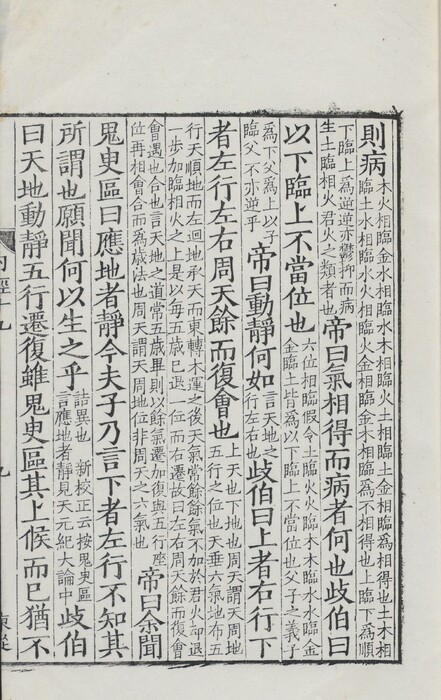 則病木火相臨金水相臨水木相臨火土相臨土金相臨爲相得也土木相
臨土水相臨水火相臨火金相臨金木相臨爲不相得也上臨下爲順
下臨上爲逆逆亦鬱抑而病
生土臨相火君火之類者也帝曰氣相得而病者何也歧伯曰
以下臨上不當位也六位相臨假令土臨火火臨木木臨水水臨金
金臨土皆爲以下臨上不當位也父子之義子
爲下父爲上以子
臨父不亦逆乎帝曰動靜何如言天地之
行左右也歧伯曰上者右行下
者左行左右周天餘而復會也上天也下地也周天謂天周地
五行之位也天垂六氣地布五
行天順地而左迴地承天而東轉木運之後天氣常餘餘氣不加於君火却退
一步加臨相火之上是以每五歲已退一位而右遷故曰左右周天餘而復會
會遇也合也言天地之道常五歲畢則以餘氣遷加復與五行座
位再相會合而爲歲法也周天謂天周地位非周天之六氣也帝曰余聞
鬼臾區曰應地者靜今夫子乃言下者左行不知其
所謂也願聞何以生之乎詰異也 新校正云按鬼臾區
言應地者靜見天元紀大論中歧伯
曰天地動靜五行遷復雖鬼臾區其上候而已猶不